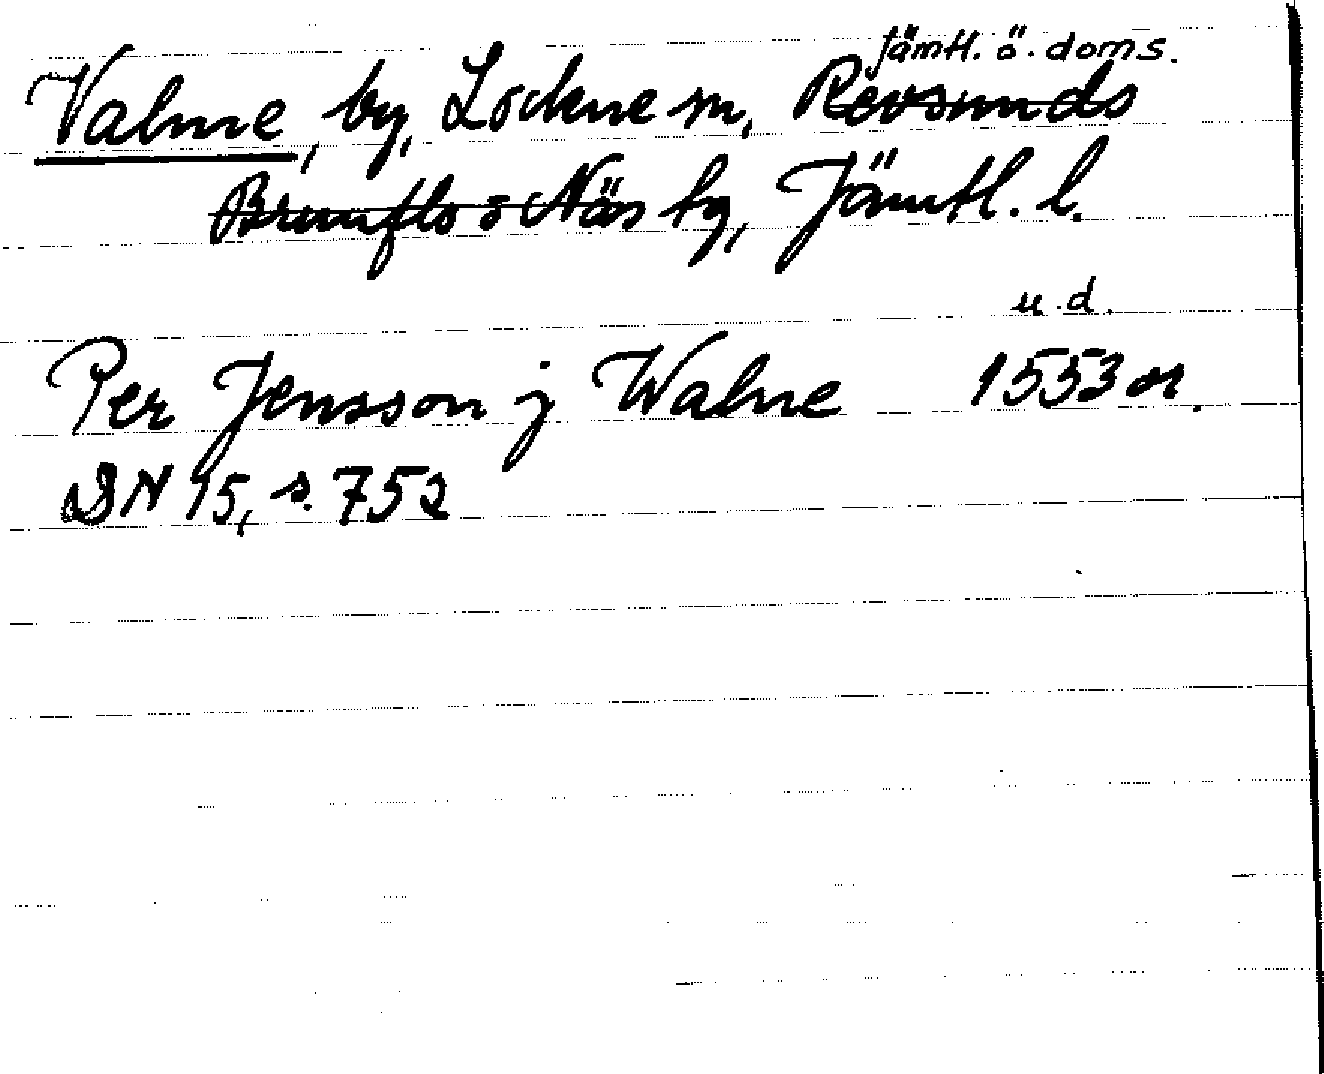 Jämtl. ö. doms.
Valne, by, Lockne sn, Revsunds
Brunflo o Näs tg, Jämtl. l.
u.d.
Per Jensson j Walne 1553 or.
DN 15, s. 752